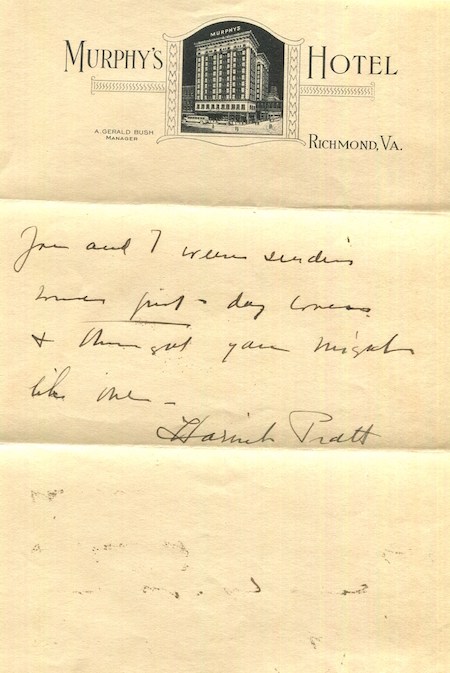 MURPHY'S
MURPHY'S HOTEL
A. GERALD BUSH
MANAGER
RICHMOND, VA.
and I were sending
some first-day covers
& thought you might
like one –
Harriet Pratt